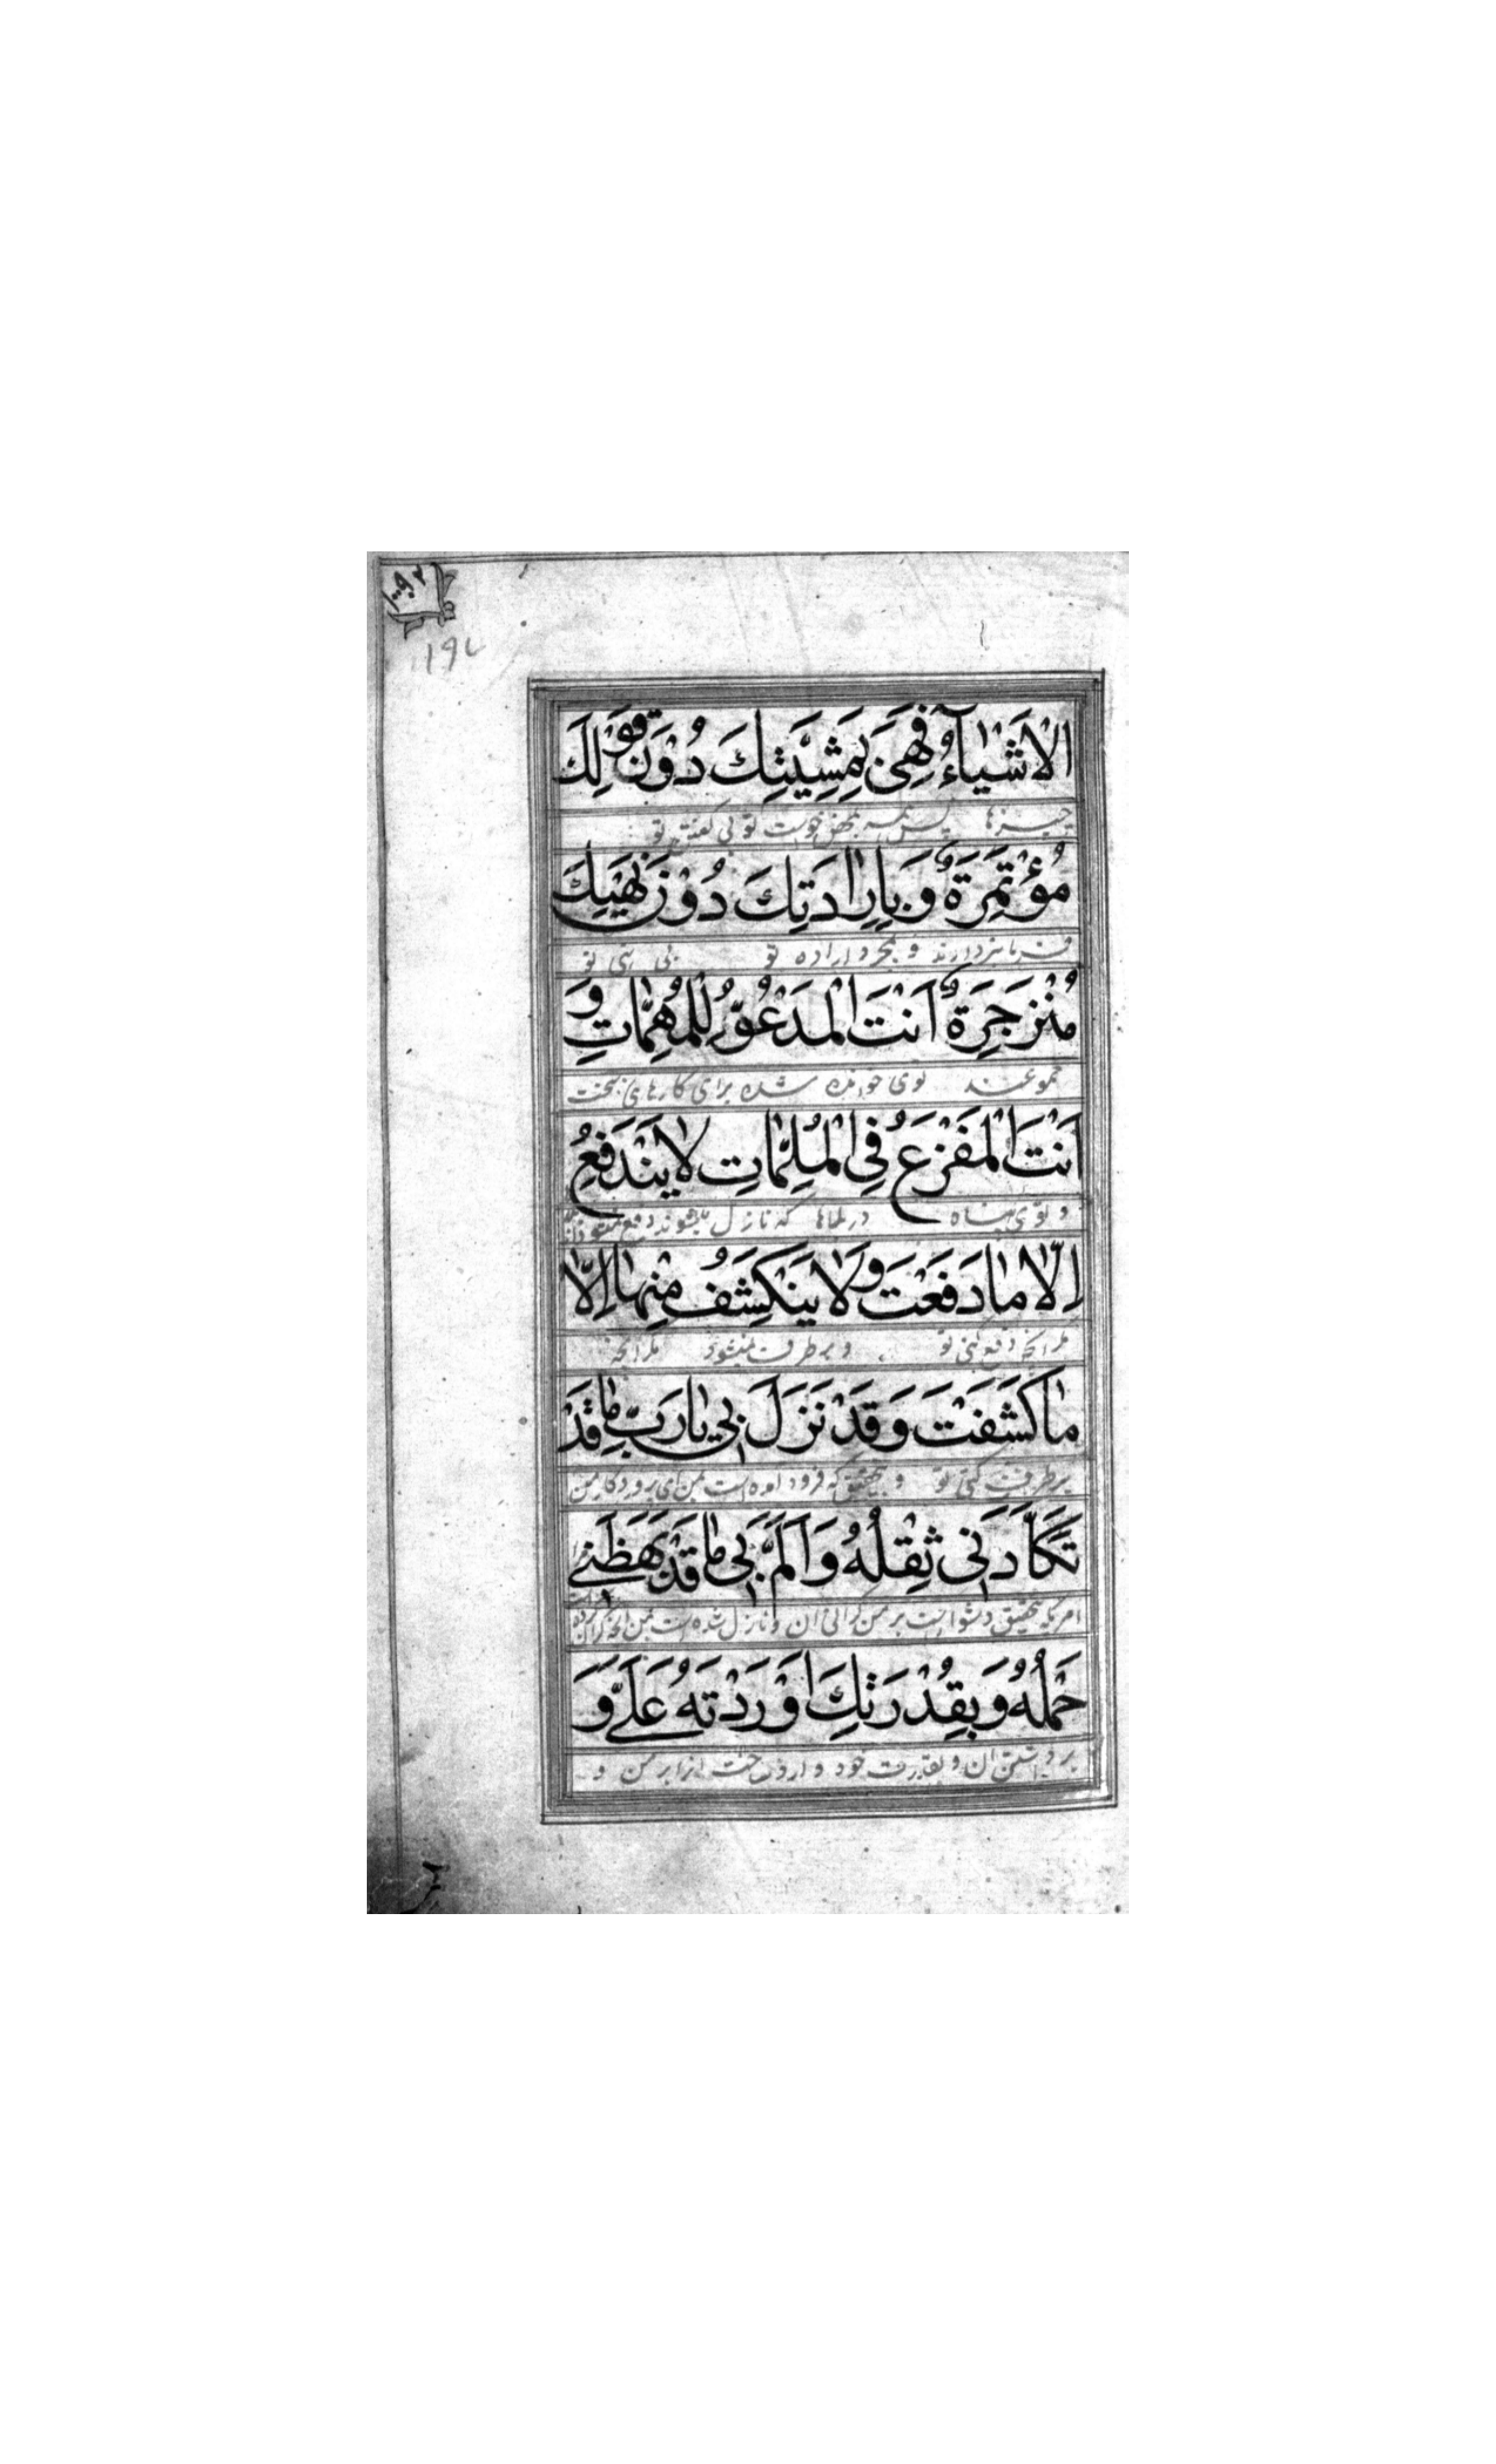 ۱۹۷
الْاَشْيٰآءُ فَهِىَ بِمَشِيَّتِكَ دُوْنَ قَوْلِكَ
چیزها پس همه بمحض خواست تو بی گفتن تو
مُؤْتَمِرَةٌ وَ بِاِرٰادَتِكَ دُوْنَ نَهْيِكَ
فرمانبردارند و بمجرد اراده تو بی نهی تو
مُنْزَجِرَةٌ اَنْتَ الْمَدْعُوُّ لِلْمُهِمّٰاتِ وَ
ممنوعند توی خوانده شده برای کارهای سخت
اَنْتَ الْمَفْزَعُ فِى الْمُلِمّٰاتِ لٰا يَنْدَفِعُ
و توی پناه در بلاها که نازل میشوند دفع نمیشود
اِلّٰا مٰا دَفَعْتَ وَ لٰا يَنْكَشِفُ مِنْهٰا اِلّٰا
مکر انچه دفع کنی تو و برطرف نمیشود مکر انچه
مٰا كَشَفْتَ وَ قَدْ نَزَلَ بِى يٰا رَبِّ مٰا قَدْ
برطرف کنی تو و بتحقیق که فرود امده است بمن ای پروردکار من
تَكَأَّدَنِى ثِقْلُهُ وَ اَلَمَّ بِى مٰا قَدْ بَهَظَنِى
امریکه بتحقیق دشوار است بر من کرانی ان و نازل شده است بمن انچه کران کرده
حَمْلُهُ وَ بِقُدْرَتِكَ اَوْرَدْتَهُ عَلَىَّ وَ
برداشتن ان و بقدرت خود وارد ساخت انرا بر من و